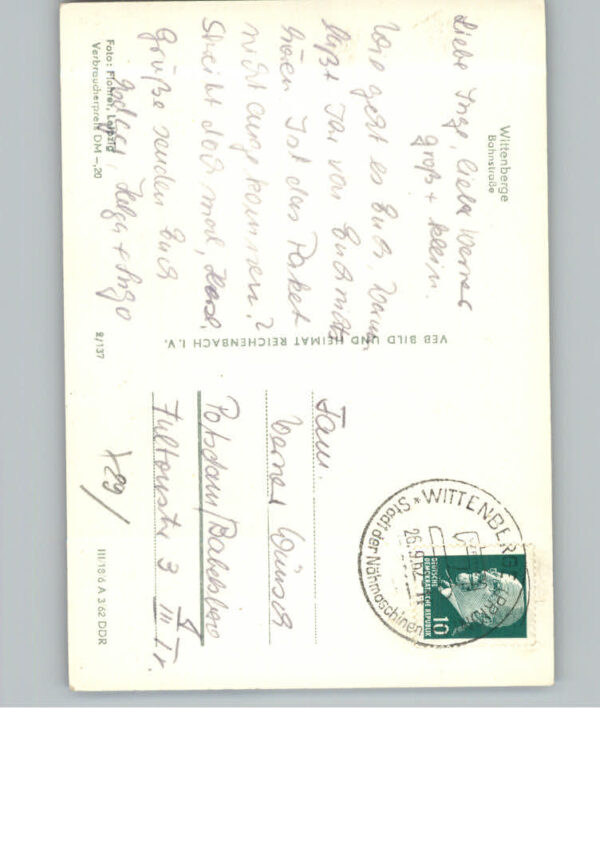 Wittenberge
Bahnstraße
Liebe Inge, lieber Werner
groß + klein.
Wie geht es Euch, Warum
laßt Ihr von Euch nichts
hören. Ist das Paket
nicht angekommen?
Schreibt doch mal,
Grüße senden Euch
Helga + Ingo
Foto: Flohrer, Leipzig
Verbraucherpreis DM -,20
VEB BILD UND HEIMAT REICHENBACH I. V.
9/137
Fam.
Werner Wünsch
Potsdam/Babelsberg
3 III Tr.
WITTENBERGE
Stadt der Nähmaschinen
26.9.62
DEUTSCHE
DEMOKRATISCHE REPUBLIK
10
III/18/6 A 3 62 DDR